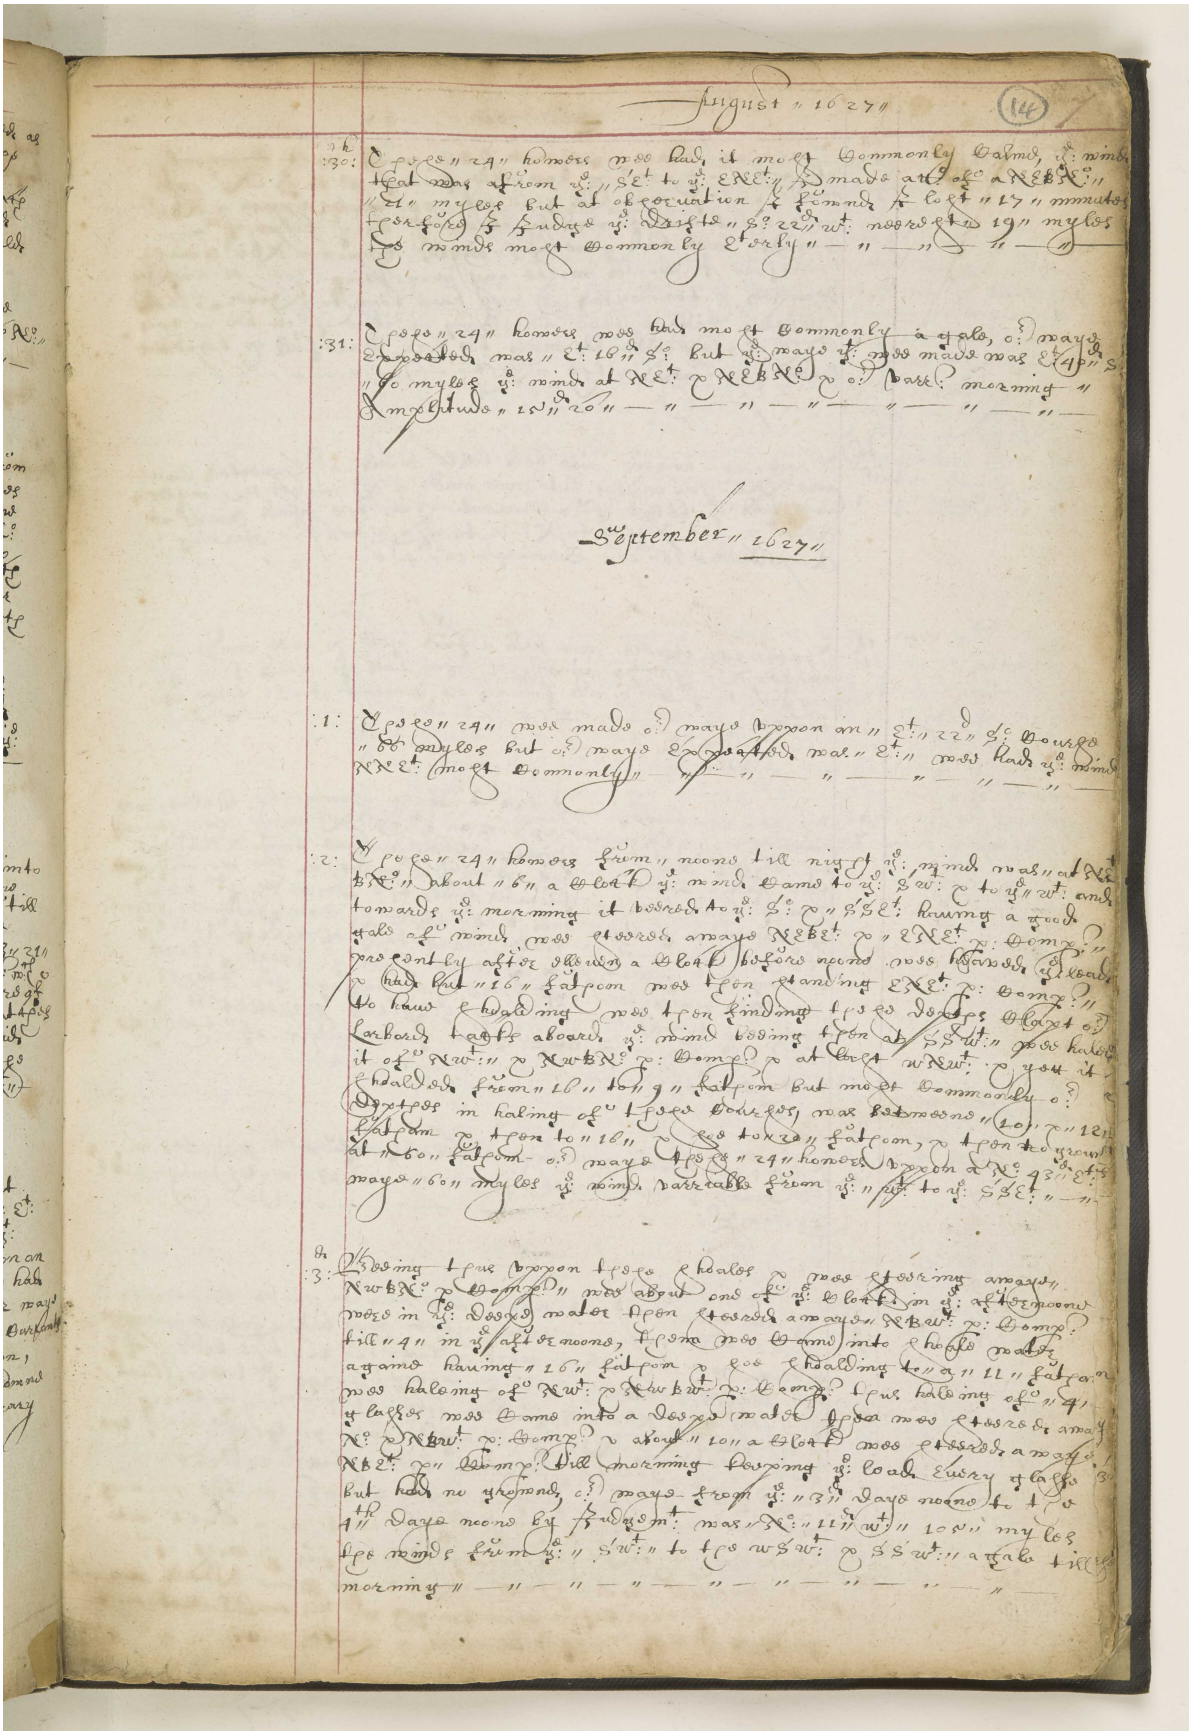 August " 1627 "
14
:30: These " 24 " howers wee had it most Commonly Calme, ye: wind
that was afrom ye: " SEt to ye: ENEt: " I made a of a NEBNo: "
" 21 " myles but at observation I fownd I lost " 17 " minutes
therfore I Iudge ye drifte " So 22d wt: neerest " 19 " myles
the winds most Commonly Eterly " — " — " — " — " —
:31: These " 24 " howers wee had most Commonly a gale, or waye
Expected was " Et: 16d " So: but ye: waye yt: wee made was Et 40d " S
" 60 myles ye: wind at NEt: & NEBNo: & or varr: morning "
Amplitude " 15d " 20 " — " — " — " — " — " — " —
September " 1627 "
:1: These " 24 " wee made or waye vppon an " Et: " 22d " So: Course
" 66 myles but or waye Expected was " Et: " wee had ye: wind
NNEt: most Commonly " — " — " — " — " — " — " —
:2: These " 24 " howers from " noone till night ye: wind was " at NEt
BNo: " about " 6 " a Clock ye: wind Came to ye: Swt: & to ye " wt: and
towards ye: morning it veered to ye: So: & " SSEt: having a good
gale of wind, wee steered awaye NEBEt: & " ENEt: p: Comp: "
presently after elleven a Clock before noone wee heaved ye lead
& had but " 16 " fathom wee then standing ENEt: p: Comp: "
to have shoalding wee then finding these depths Clapt or
Larbord tacks aboard ye: wind beeing then at SSwt: " wee haled
it of Nwt: " & NwBNo: p: Comp: & at last wNwt: & yett it
shoalded from " 16 " to " 9 " fathom but most Commonly or
depthes in haling of these Courses, was betweene " 10 " & " 12 "
fathom & then to " 16 " & soe to " 20 " fathom, & then no ground
at " 60 " fathom or waye these " 24 " howers vppon a No: 43d " Et:
waye " 60 " myles ye: wind varriable from ye: " wt: to ye: SSEt: " — " —
:3: Beeing thus vppon these shoales & wee steering awaye "
NwBNo: p Comp: " wee about one of ye: Clock in ye: afternoone
were in ye: deepe water then steered awaye " NBwt: p: Comp:
till " 4 " in ye afternoone, then wee Came into shoale water
againe having " 16 " fathom & soe shoalding to " a " 11 " fathom
wee haleing of Nwt: & NwBwt: p: Comp: thus haleing of " 4 "
glasses wee Came into a deepe water then wee steered away
No: & NBwt: p: Comp: & about " 10 " a Clock wee steered a waye
NBEt: p " Comp: till morning keeping ye: lead Every glasse
but had no grownd, or waye from ye: " 3d " daye noone to the
4th " daye noone by Iudgemt: was " No: " 11d " wt: " 105 " myles
the winds from ye: " Swt: " to the wSwt: & SSwt: " a gale till
morning " — " — " — " — " — " — " — " — "